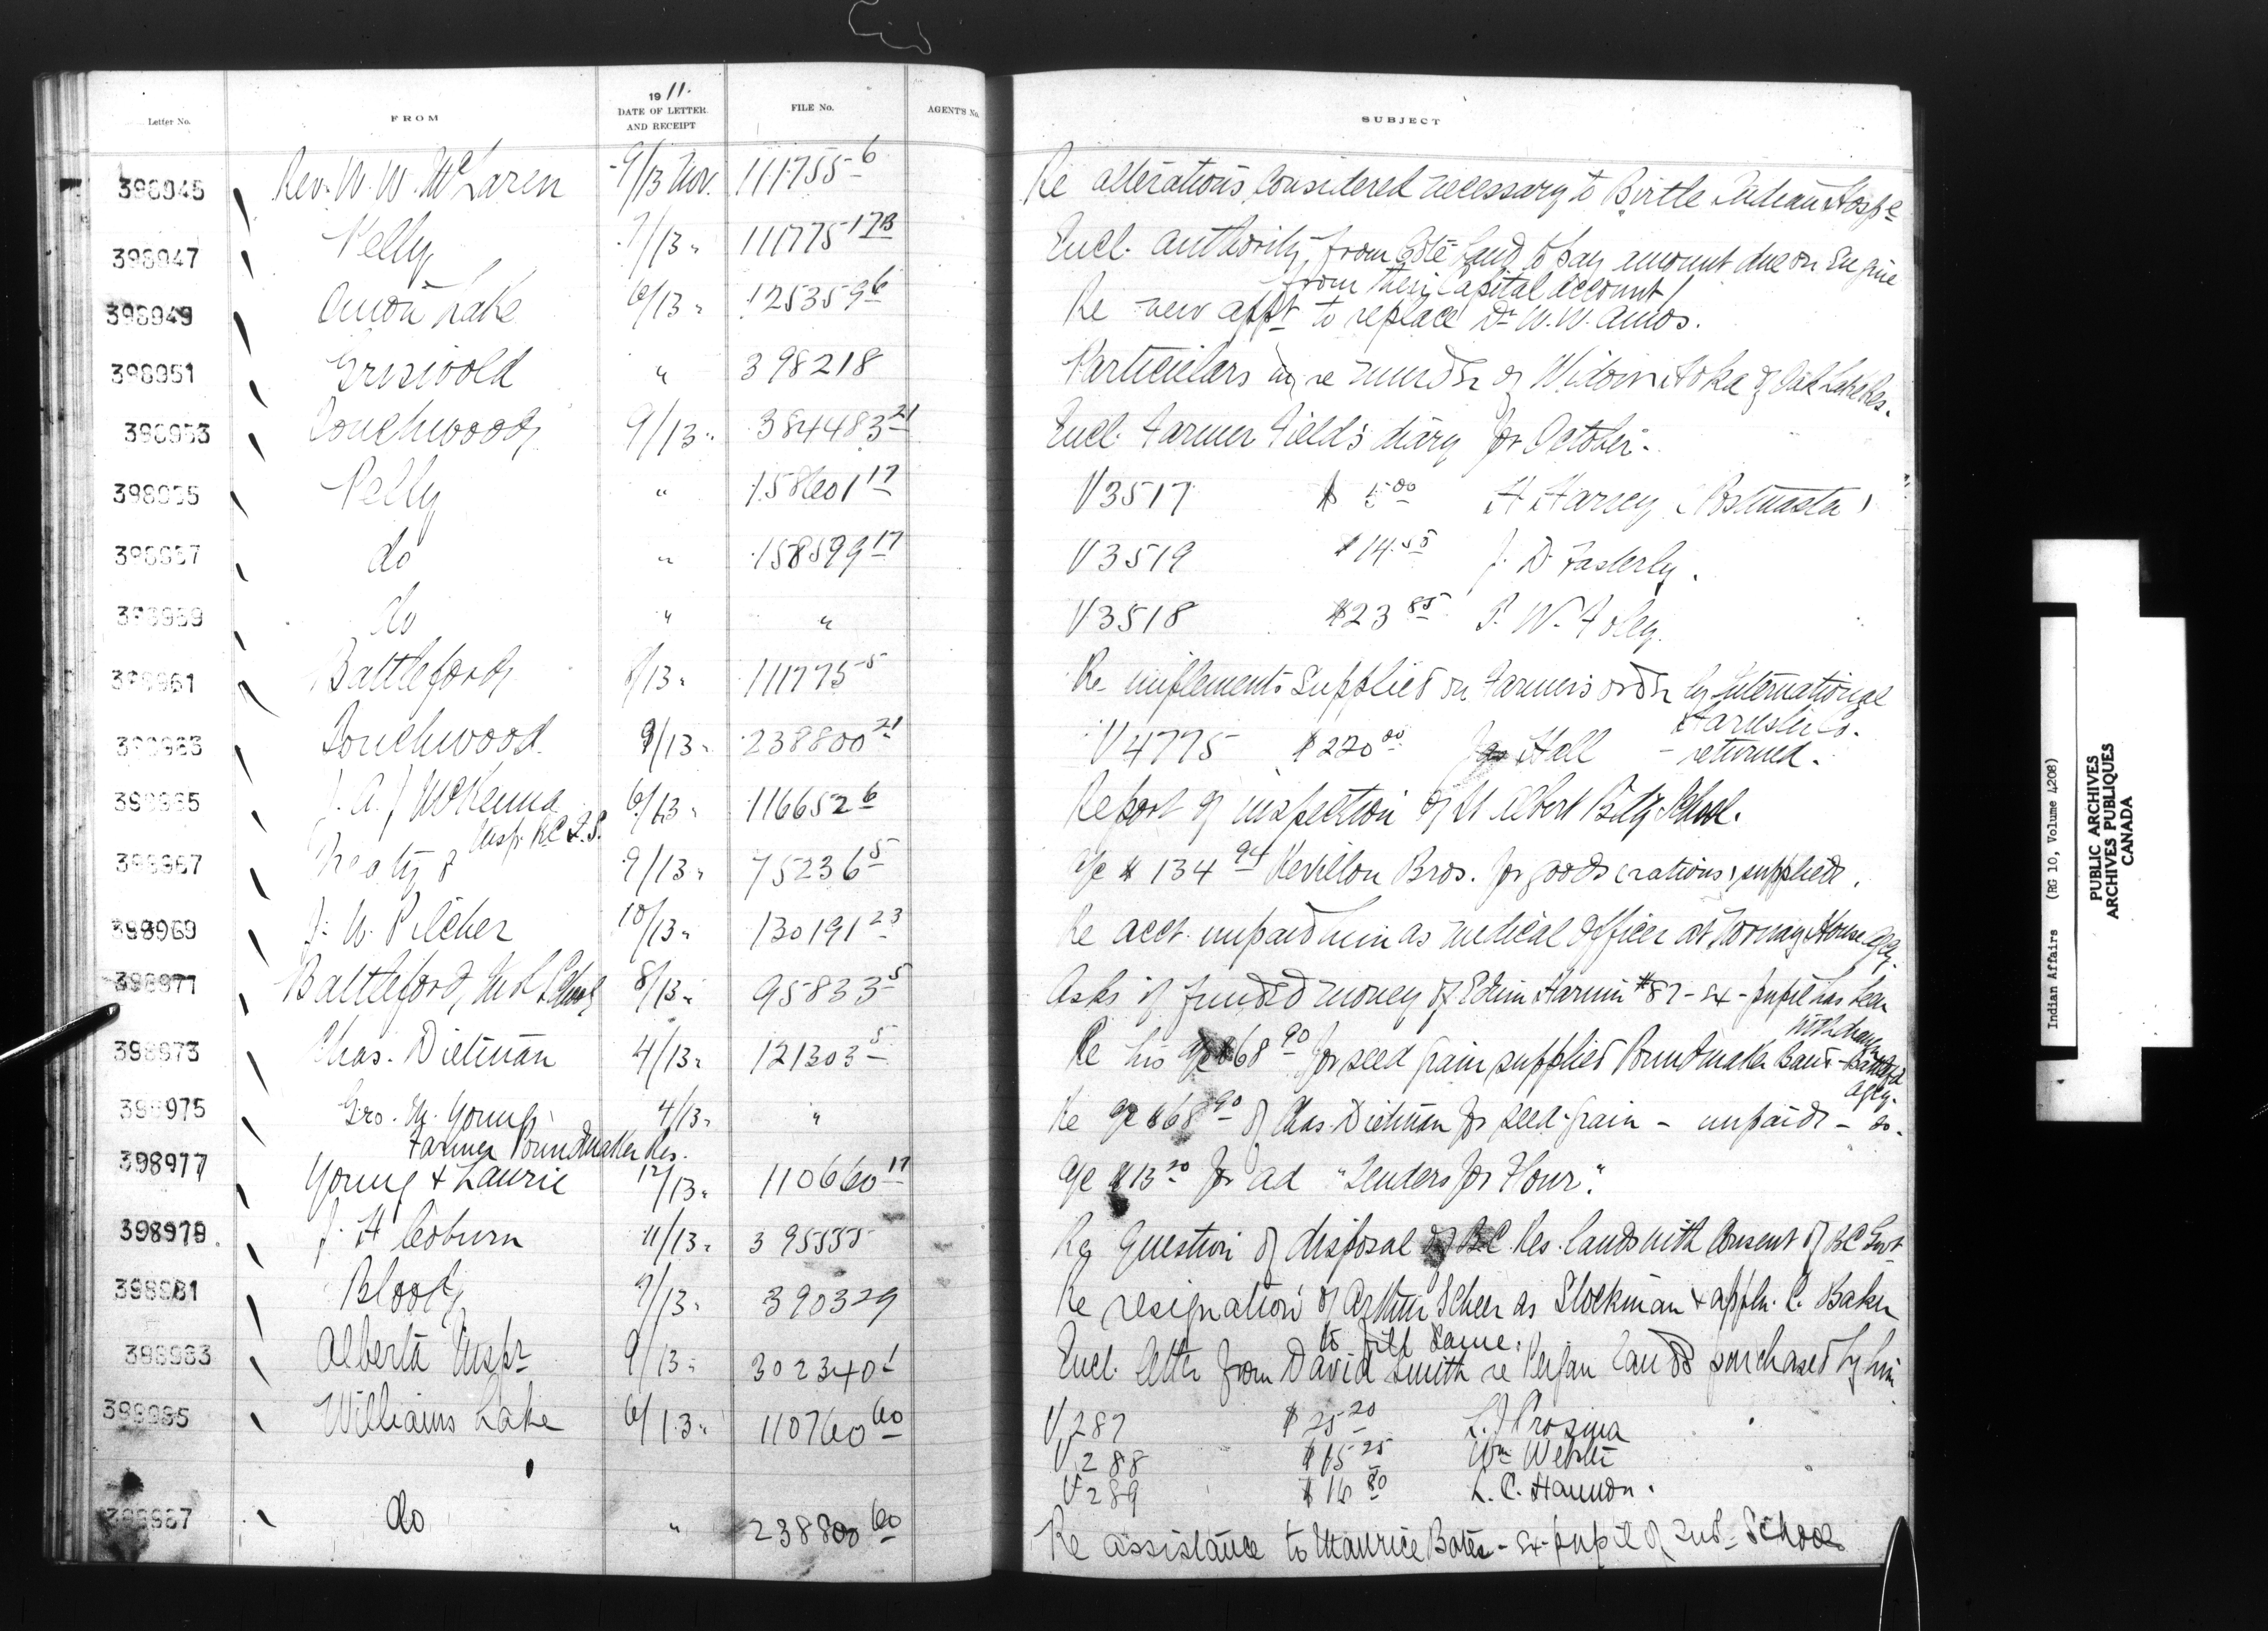 Letter No. FROM 1911. DATE OF LETTER AND RECEIPT FILE No. AGENT'S No. SUBJECT
398945 Rev. W. W. McLaren 9/13 Nov. 111755-6 Re alterations considered necessary to Birtle Indian Hosp
398947 Pelly 7/13 " 111775-17B Encl. authority from Coté band to pay amount due on Engine
from their Capital account
398949 Onion Lake 6/13 " 125359 6 Re new appt to replace Dr W. W. Amos.
398951 Griswold " 398218 Particulars re murder of Widow Hoka of Oak Lake Res.
398953 Touchwood 9/13 " 384483 21 Encl. Farmer Field's diary for October.
398955 Pelly " 158601 17 V3517 $ 5 00 H Harvey (Postmaster)
398957 do " 158599 17 V3519 $14.55 J. D. Fasterly.
398959 do " " V3518 $23 85 P. W. Foley.
398961 Battleford 8/13 " 111775-5 Re implements supplied on Farmers order by International
Harvester Co.
398963 Touchwood 9/13 " 238800 21 V4775 $220 00 Jas Hall - returned.
398965 J. A. J. McKenna 6/13 " 116652 6 Report of inspection of St Albert Bdg School.
Insp. RC I.S.
398967 Treaty 8 9/13 " 75236 5 a/c $134 94 Revillon Bros. for goods (rations) supplied.
398969 J. W. Pilcher 10/13 " 130191 23 Re acct. unpaid him as medical officer at Norway House Agcy.
398971 Battleford, Ind School 8/13 " 95833 5 Asks if funded money of Edwin #87 - ex-pupil has been
withdrawn
398973 Chas. Dietman 4/13 " 121303 5 Re his a/c $68 90 for seed grain supplied Poundmaker Band - Battlefd
agcy.
398975 Geo. M. Young 4/13 " " Re a/c $68 90 of Chas. Dietman for seed-grain - unpaid - do.
Farmer Poundmaker Res.
398977 Young & Laurie 12/13 " 110660 17 a/c $13 20 for ad "Tenders for Flour".
398979. J. H Coburn 11/13 " 395535 Re Question of disposal of B.C. Res. lands with Consent of BC Govt
398981 Blood 9/13 " 390329 Re resignation of Arthur Scheer as Stockman & appln. C. Baker
to fill same.
398983 Alberta Inspr 9/13 " 302340 1 Encl. letter from David Smith re Peigan Lands purchased by him
398985 Williams Lake 6/13 " 110760 60 V287 $25 20
V288 $15 25 Wm
V289 $16 80 L. C. Hannon.
398987 do " 238800 60 Re assistance to Maurice Bates - ex-pupil of Ind. School
Indian Affairs (RG 10, Volume 4208)
PUBLIC ARCHIVES
ARCHIVES PUBLIQUES
CANADA